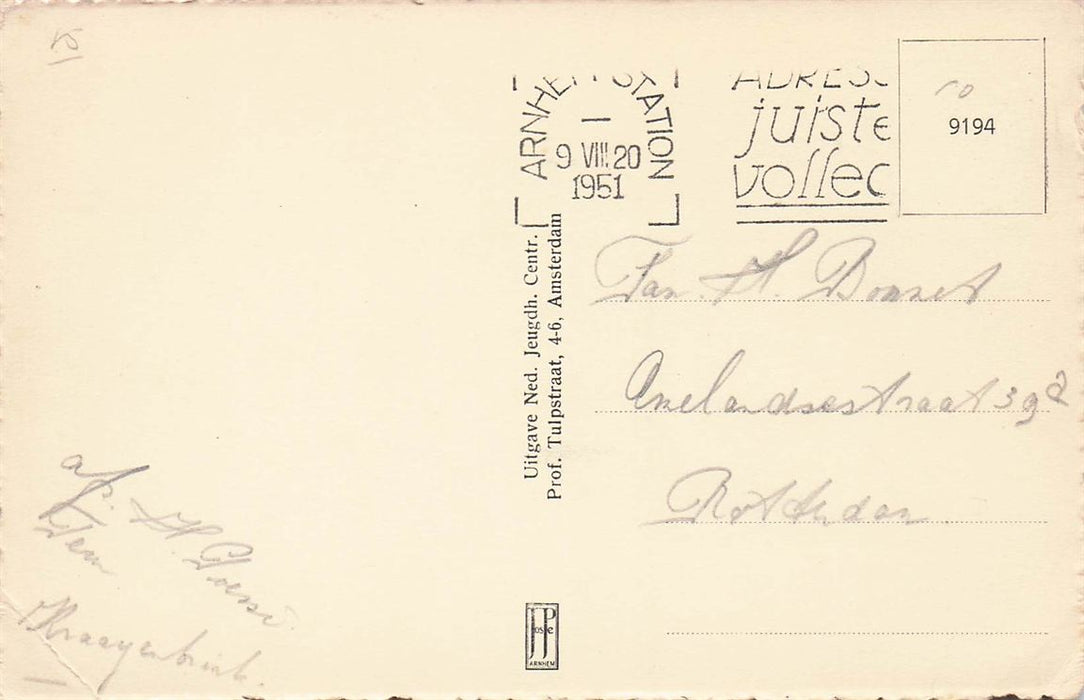 ARNHEM STATION
9 VIII 20
1951
ADRES
juiste
volled
9194
Uitgave Ned. Jeugdh. Centr.
Prof. Tulpstraat, 4-6, Amsterdam
Fam. H. Bonset
Amelandsestraat 39a
Rotterdam
afz. H.
Kraayenbrink
JosPé
ARNHEM